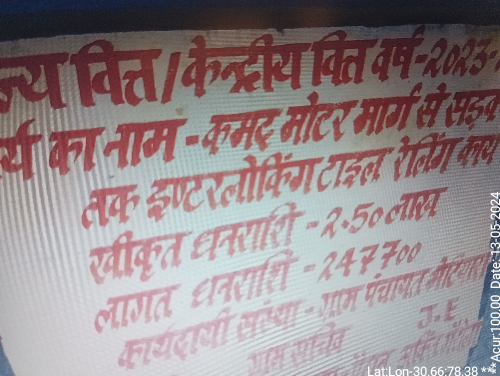 ज्य वित्त/केन्द्रीय वित्त वर्ष-२०२3-
र्य का नाम - कमद मोटर मार्ग से सड़क
तक इण्टरलोकिंग टाइल रेलिंग कार्य
स्वीकृत धनराशि - २.५० लाख
लागत धनराशि - 247700
कार्यदायी संस्था - ग्राम पंचायत
ग्राम J.E
Lat:Lon-30.66:78.38 **Acur100.00 Date:13-05-2024